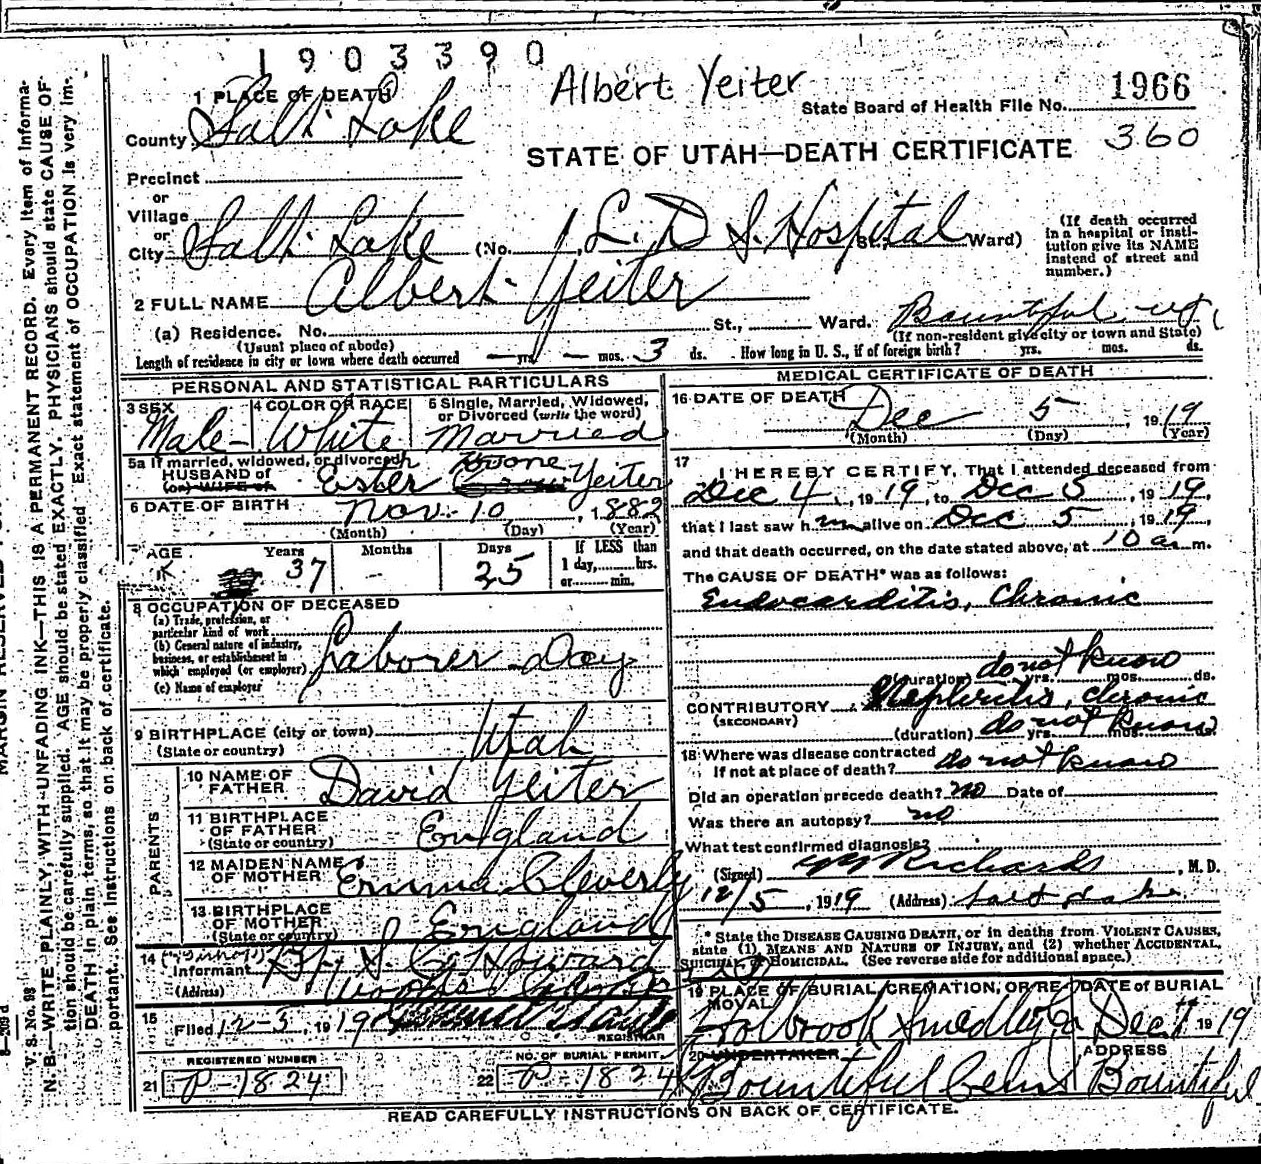 1903390
Albert Yeiter
State Board of Health File No. 1966
360
STATE OF UTAH—DEATH CERTIFICATE
1 PLACE OF DEATH
County Salt Lake
Precinct
or
Village
or
City Salt Lake (No. L. D. S. Hospital St., Ward)
(If death occurred in a hospital or institution give its NAME instead of street and number.)
2 FULL NAME Albert Yeiter
(a) Residence. No. St., Ward. Bountiful, Ut,
(Usual place of abode) (If non-resident give city or town and State)
Length of residence in city or town where death occurred — yrs. — mos. 3 ds. How long in U. S., if of foreign birth? yrs. mos. ds.
PERSONAL AND STATISTICAL PARTICULARS
3 SEX Male
4 COLOR OR RACE White
5 Single, Married, Widowed, or Divorced (write the word) Married
5a If married, widowed, or divorced
HUSBAND of
(or) WIFE of Ester Yeiter
6 DATE OF BIRTH Nov. 10, 1882
(Month) (Day) (Year)
AGE Years 37 Months — Days 25 If LESS than 1 day, hrs. or min.
8 OCCUPATION OF DECEASED
(a) Trade, profession, or particular kind of work
(b) General nature of industry, business, or establishment in which employed (or employer)
Laborer Day
(c) Name of employer
9 BIRTHPLACE (city or town) Utah
(State or country)
PARENTS
10 NAME OF FATHER David Yeiter
11 BIRTHPLACE OF FATHER England
(State or country)
12 MAIDEN NAME OF MOTHER Emma Cleverly
13 BIRTHPLACE OF MOTHER England
(State or country)
14
Informant Howard
(Address) Woods Cross
15
Filed 12-5, 1919
REGISTRAR
REGISTERED NUMBER
21 P-1824
NO. OF BURIAL PERMIT
22 P-1824
MEDICAL CERTIFICATE OF DEATH
16 DATE OF DEATH Dec 5, 1919
(Month) (Day) (Year)
17
I HEREBY CERTIFY, That I attended deceased from
Dec 4, 1919, to Dec 5, 1919,
that I last saw h m alive on Dec 5, 1919,
and that death occurred, on the date stated above, at 10 a. m.
The CAUSE OF DEATH* was as follows:
Endocarditis, Chronic
(duration) do not know yrs. mos. ds.
CONTRIBUTORY Nephritis, Chronic
(SECONDARY)
(duration) do not know yrs. mos. ds.
18 Where was disease contracted
If not at place of death? do not know
Did an operation precede death? no Date of
Was there an autopsy? no
What test confirmed diagnosis?
(Signed) Richards, M. D.
12/5, 1919 (Address) Salt Lake
* State the DISEASE CAUSING DEATH, or in deaths from VIOLENT CAUSES, state (1) MEANS AND NATURE OF INJURY, and (2) whether ACCIDENTAL, SUICIDAL or HOMICIDAL. (See reverse side for additional space.)
19 PLACE OF BURIAL, CREMATION, OR REMOVAL
Holbrook Smedley Co
DATE of BURIAL
Dec 7 1919
20 UNDERTAKER
Bountiful Cem
ADDRESS
Bountiful
READ CAREFULLY INSTRUCTIONS ON BACK OF CERTIFICATE.
V. S. No. 98
N. B.—WRITE PLAINLY, WITH UNFADING INK—THIS IS A PERMANENT RECORD. Every item of information should be carefully supplied. AGE should be stated EXACTLY. PHYSICIANS should state CAUSE OF DEATH in plain terms, so that it may be properly classified. Exact statement of OCCUPATION is very important. See instructions on back of certificate.